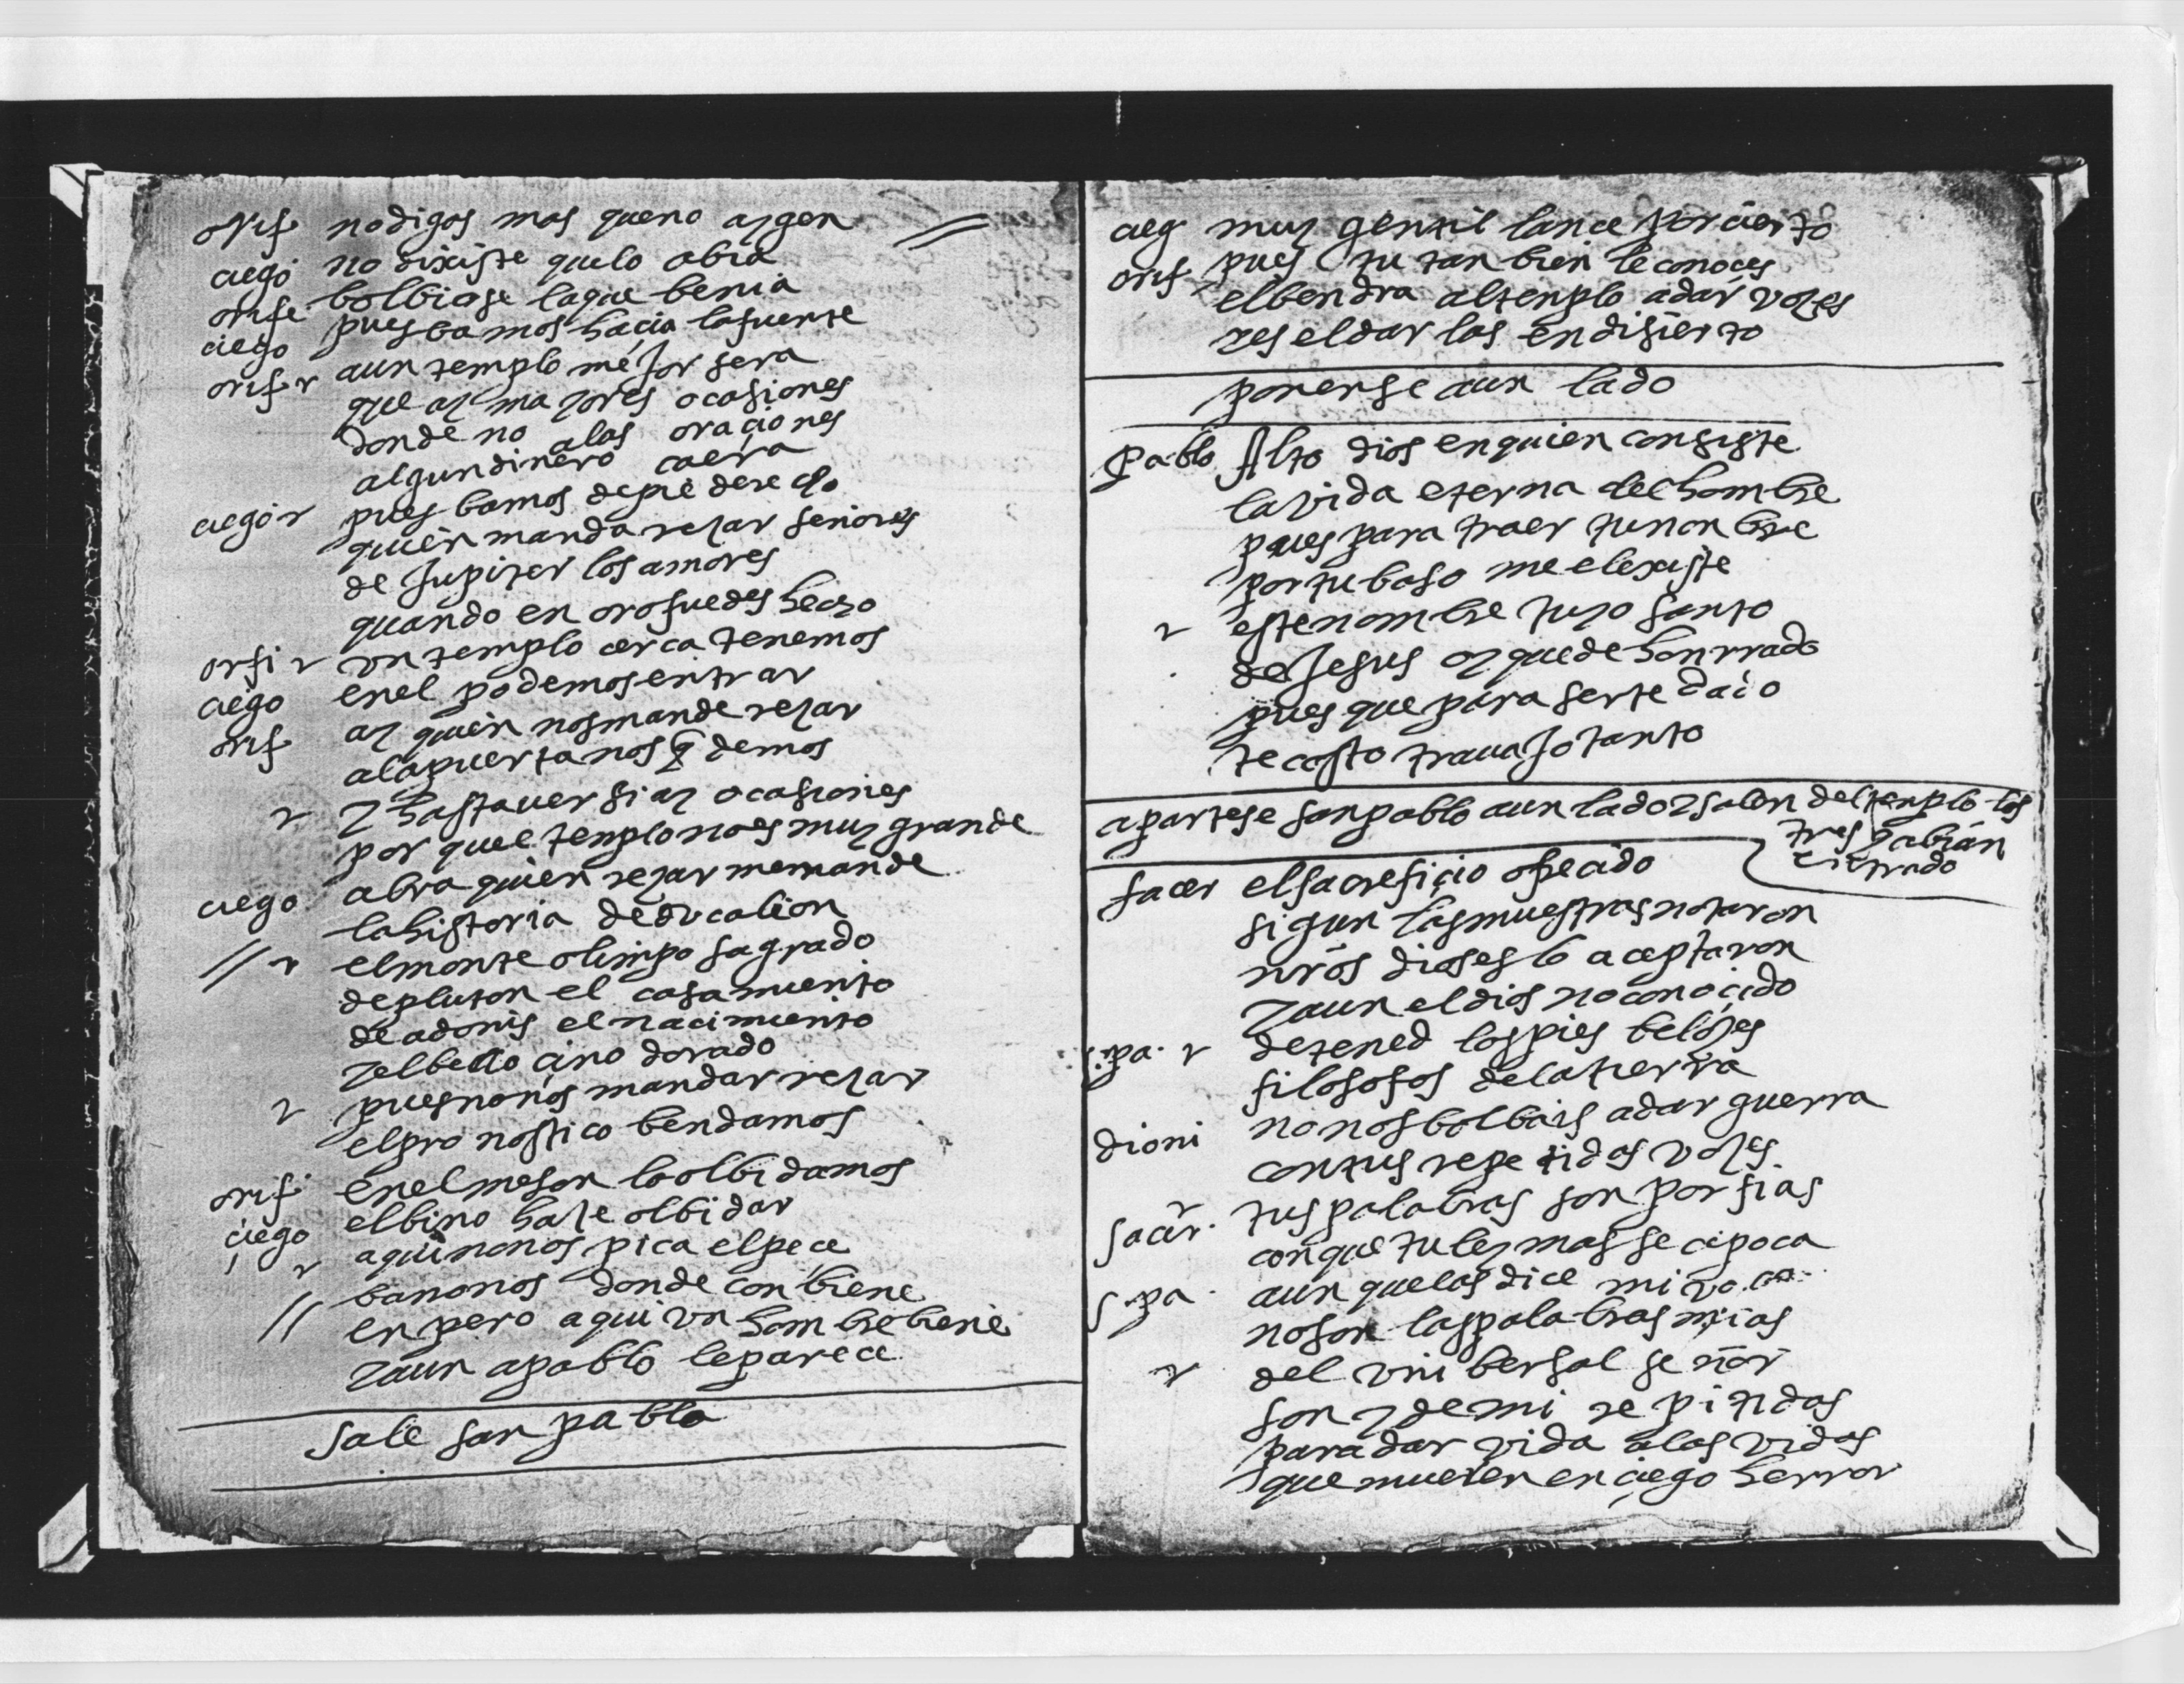 orif nodigas mas queno ay gen
ciego no dixiste que lo abia
orife bolbiose la que benia
ciego pues bamos hacia la fuente
orifr aun templo mejor sera
que ay mayores ocasiones
donde no alas oraciones
algun dinero caera
ciego r pues bamos depie derecho
quien manda rezar señores
de Jupiter los amores
quando en oro fuedes hecho
orfi r vn templo cerca tenemos
ciego enel podemos entrar
orif ay quien nos mande rezar
ala puerta nos q̃demos
r y hasta ver si ay ocasiones
por quel templo no es muy grande
ciego abra quien rezar me mande
la historia de ducalion
// r el monte olimpo sagrado
de pluton el casamiento
de adonis el nacimiento
y el bello çino dorado
r pues no nos mandar rezar
el pronostico bendamos
orif enel meson lo olbidamos
çiego el bino haze olbidar
r aqui no nos pica el pece
// bamonos donde conbiene
enpero aqui vn hombre biene
y aun a pablo le parece
sale san pablo
cieg muy gentil lance por cierto
orif pues tu tanbien le conoces
el bendra al templo a dar vozes
y es el dar las en disierto
ponense aun lado
pablo Alto dios en quien consiste
la vida eterna del hombre
pues para traer tu nonbre
por tu baso me elexiste
r este nombre tuyo santo
de Jesus oy quede honrrado
pues que para serte dado
te costo trauajo tanto
apartese san pablo aun lado y salen del templo los
tres abian
entrado
sacer el sacreficio ofrecido
sigun las muestras notaron
nr̃os dioses lo aceptaron
y aun el dios no conoçido
s. pa. r detened los pies belozes
filosofos de la tierra
dioni no nos bolbais a dar guerra
con tus repetidas vozes
sacer. tus palabras son porfias
con que tu ley mas se apoca
s. pa. aun que las dice mi voca
no son las palabras mias
r del vnibersal señor
son y de mi repitidas
para dar vida alas vidas
que mueren en çiego herror